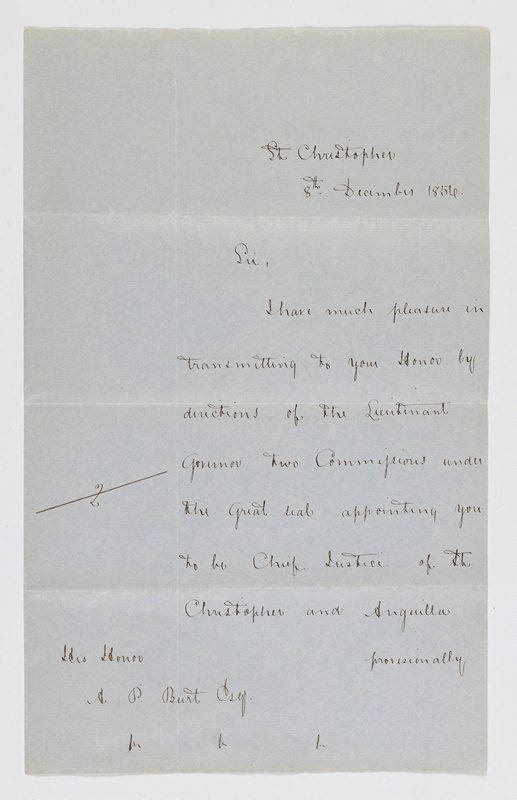 St. Christopher
8th. December 1856.
Sir,
I have much pleasure in
transmitting to your Honor by
directions of the Lieutenant
Governor two Commissions under
the Great seal appointing you
to be Chief Justice of St.
Christopher and Anguilla
provisionally
2
His Honor
A. P. Burt Esq.